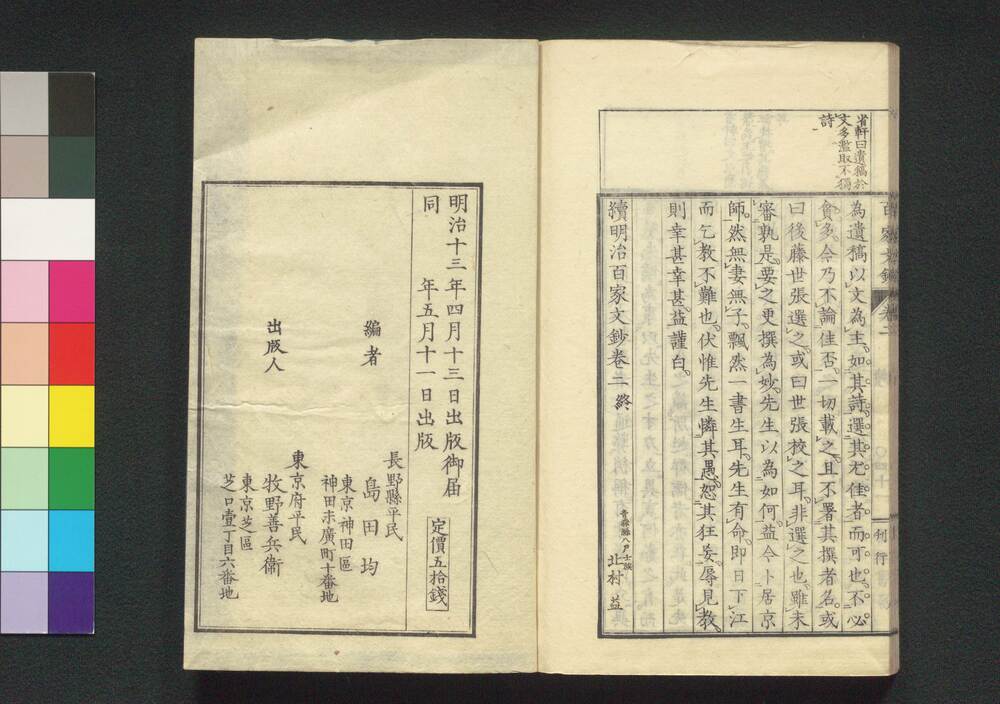 省軒曰遺稿於
文多濫取不獨
詩
為遺稿以文為主如其詩選其尤佳者而可也不必
貪多今乃不論佳否一切載之且不署其撰者名或
曰後藤世張選之或曰世張挍之耳非選之也雖未
審孰是要之更撰為妙先生以為如何益今卜居京
師然無妻無子飄然一書生耳先生有命即日下江
而乞教不難也伏惟先生憐其愚恕其狂妄辱見教
則幸甚幸甚益謹白
青森縣八戶士族
北村益
續明治百家文鈔卷二終
百家文鈔
卷二
刊行
明治十三年四月十三日出版御届
同 年五月十一日出版
定價五拾錢
長野縣平民
編者 島田均
東京神田區
神田末廣町十番地
東京府平民
出版人 牧野善兵衞
東京芝區
芝口壹丁目六番地